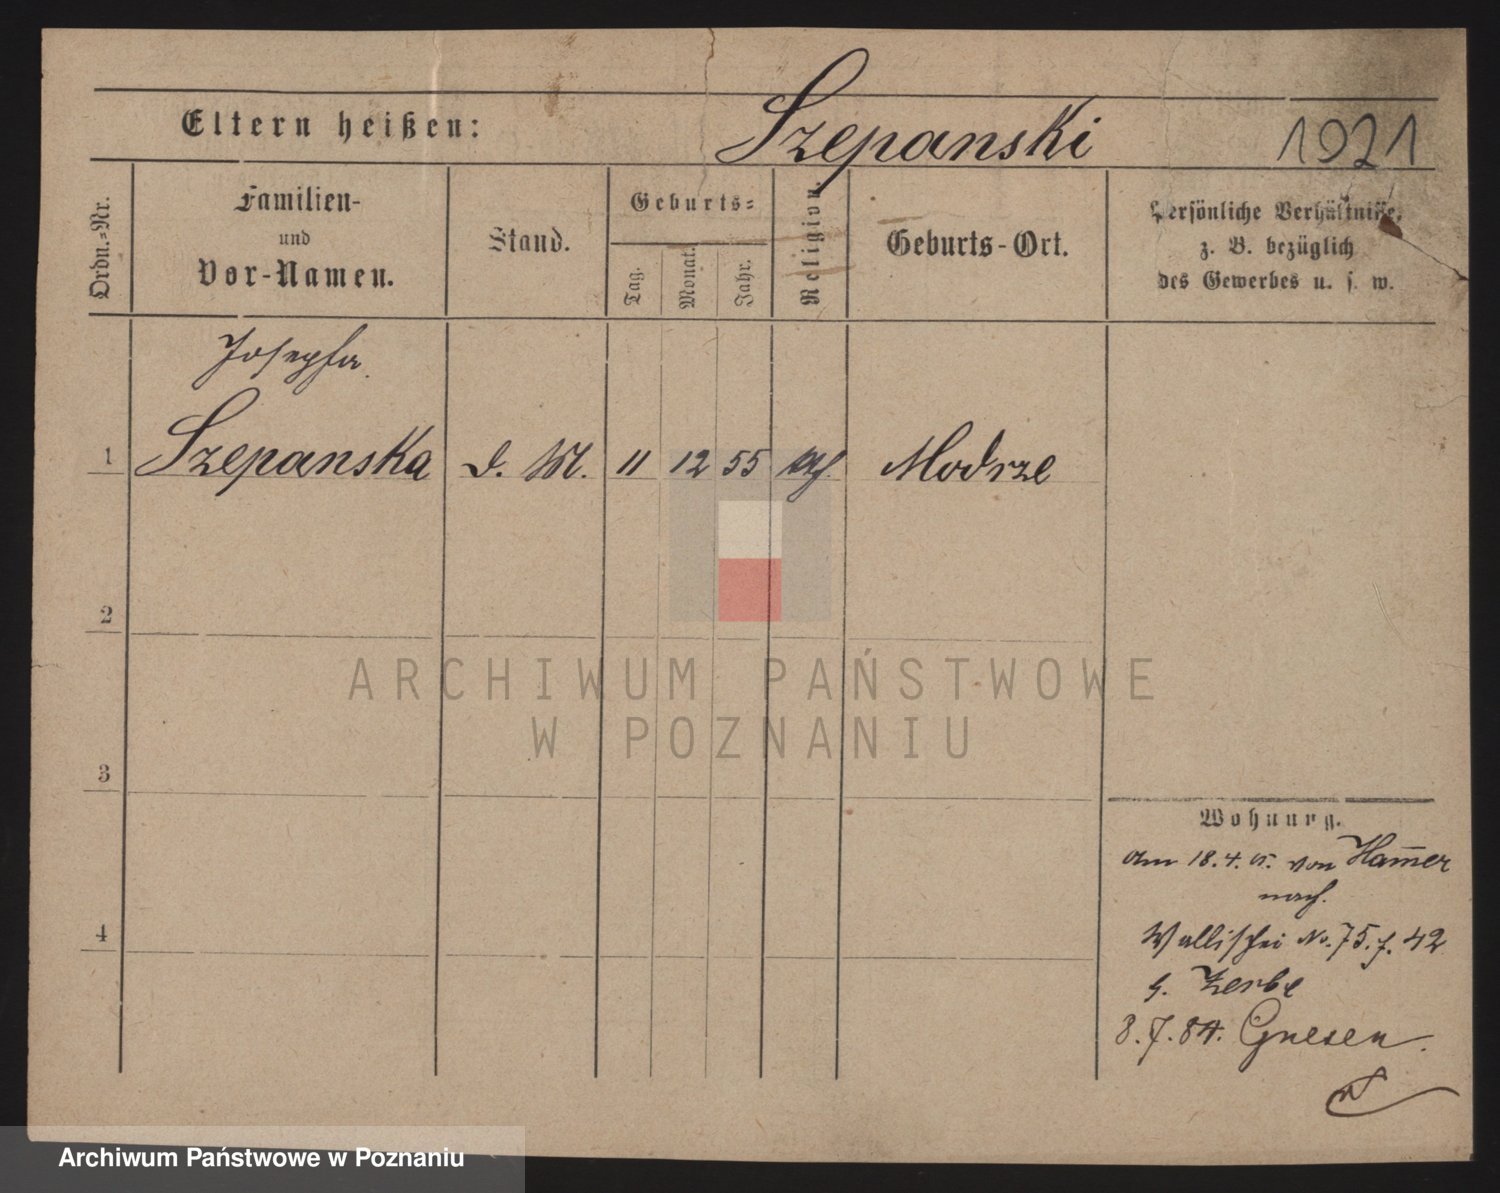 Eltern heißen:
Szepanski
1921
Ordn.-Nr.
Familien-
und
Vor-Namen.
Stand.
Geburts-
Tag.
Monat.
Jahr.
Religion.
Geburts-Ort.
Persönliche Verhältnisse,
z. B. bezüglich
des Gewerbes u. s. w.
Josepha
1 Szepanska d. M. 11 12 55 Modrze
2
3
4
Wohnung.
am 18. 4. von Ham̅er
nach
Wallischei No. 75. 42
Zerbe
8. 7. 84. Gnesen.
ARCHIWUM PAŃSTWOWE
W POZNANIU
Archiwum Państwowe w Poznaniu